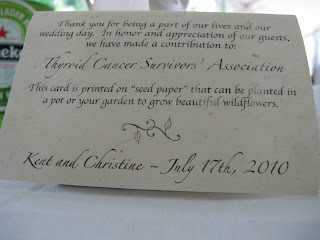 Thank you for being a part of our lives and our
wedding day. In honor and appreciation of our guests,
we have made a contribution to:
Thyroid Cancer Survivors' Association
This card is printed on "seed paper" that can be planted in
a pot or your garden to grow beautiful wildflowers.
Kent and Christine ~ July 17th, 2010